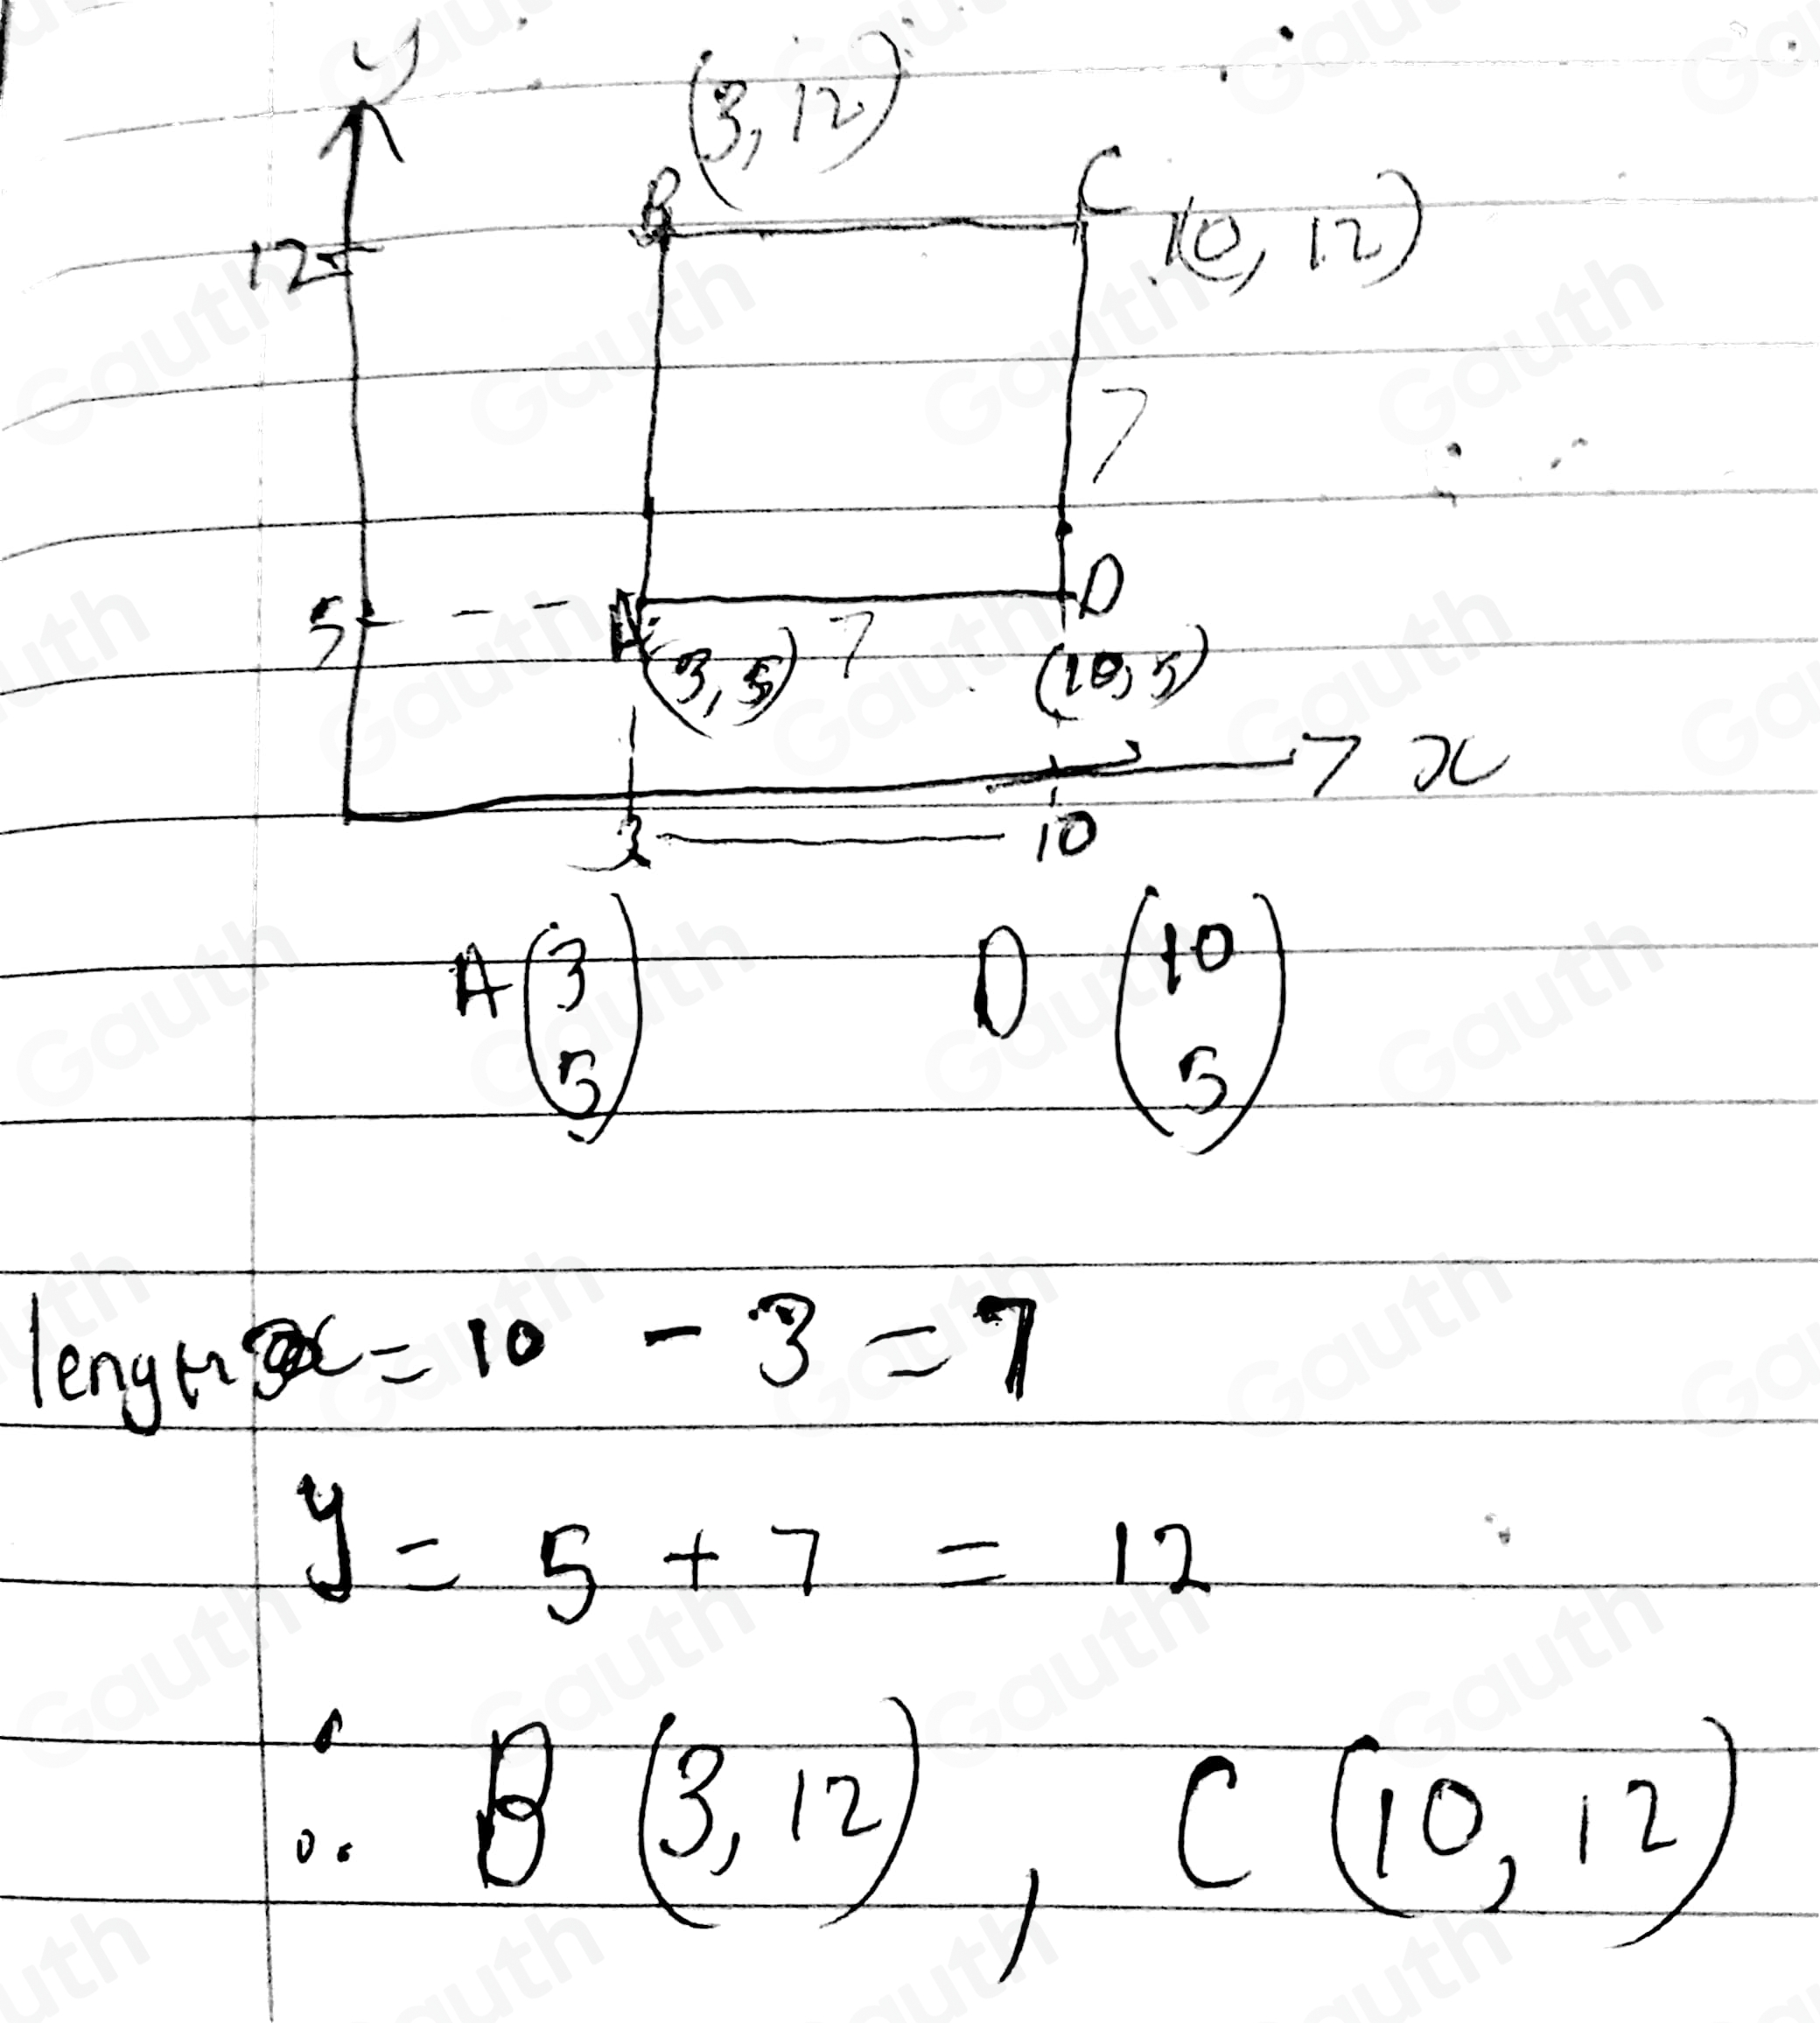 y
(3, 12)
B
C
(10, 12)
12
7
5
A
D
(3, 5)
7
(10, 5)
x
3
10
A (3
5)
D (10
5)
length x = 10 - 3 = 7
y = 5 + 7 = 12
∴ B (3, 12), C (10, 12)
Gauth